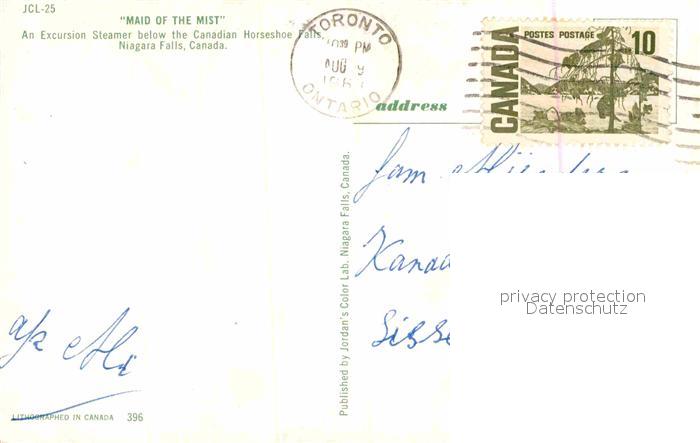 JCL-25
"MAID OF THE MIST"
An Excursion Steamer below the Canadian Horseshoe Falls,
Niagara Falls, Canada.
TORONTO
PM
AUG 9
ONTARIO
POSTES POSTAGE
10
CANADA
address
Fam
Kanad
Published by Jordan's Color Lab. Niagara Falls, Canada.
privacy protection
Datenschutz
LITHOGRAPHED IN CANADA 396